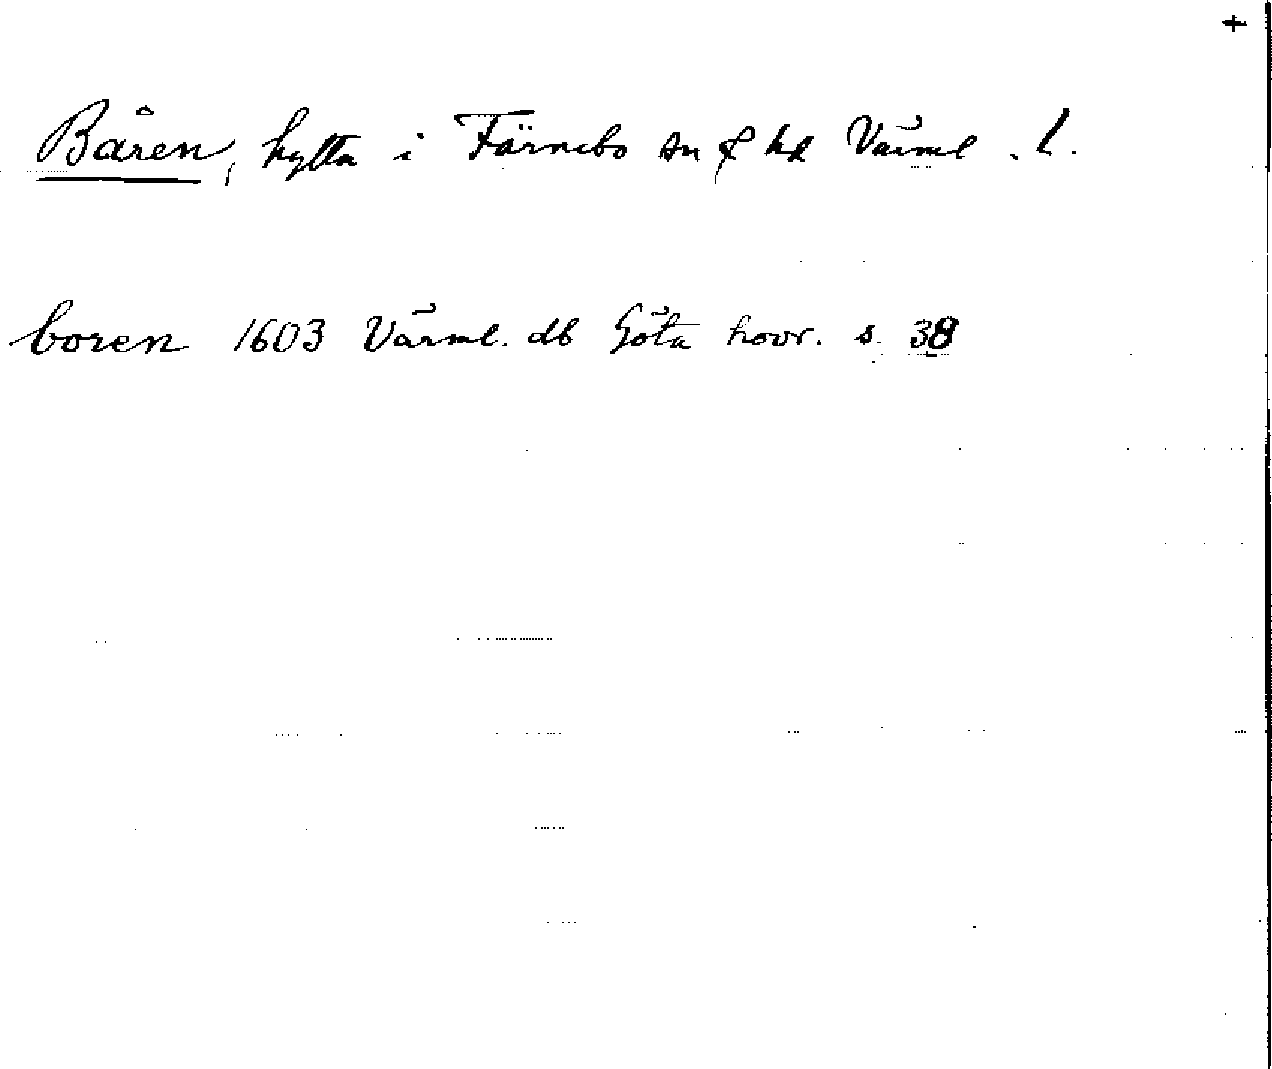 +
Båren, hytta i Färnebo sn & hd Värml. l.
boren 1603 Värml. db Göta hovr. s. 38